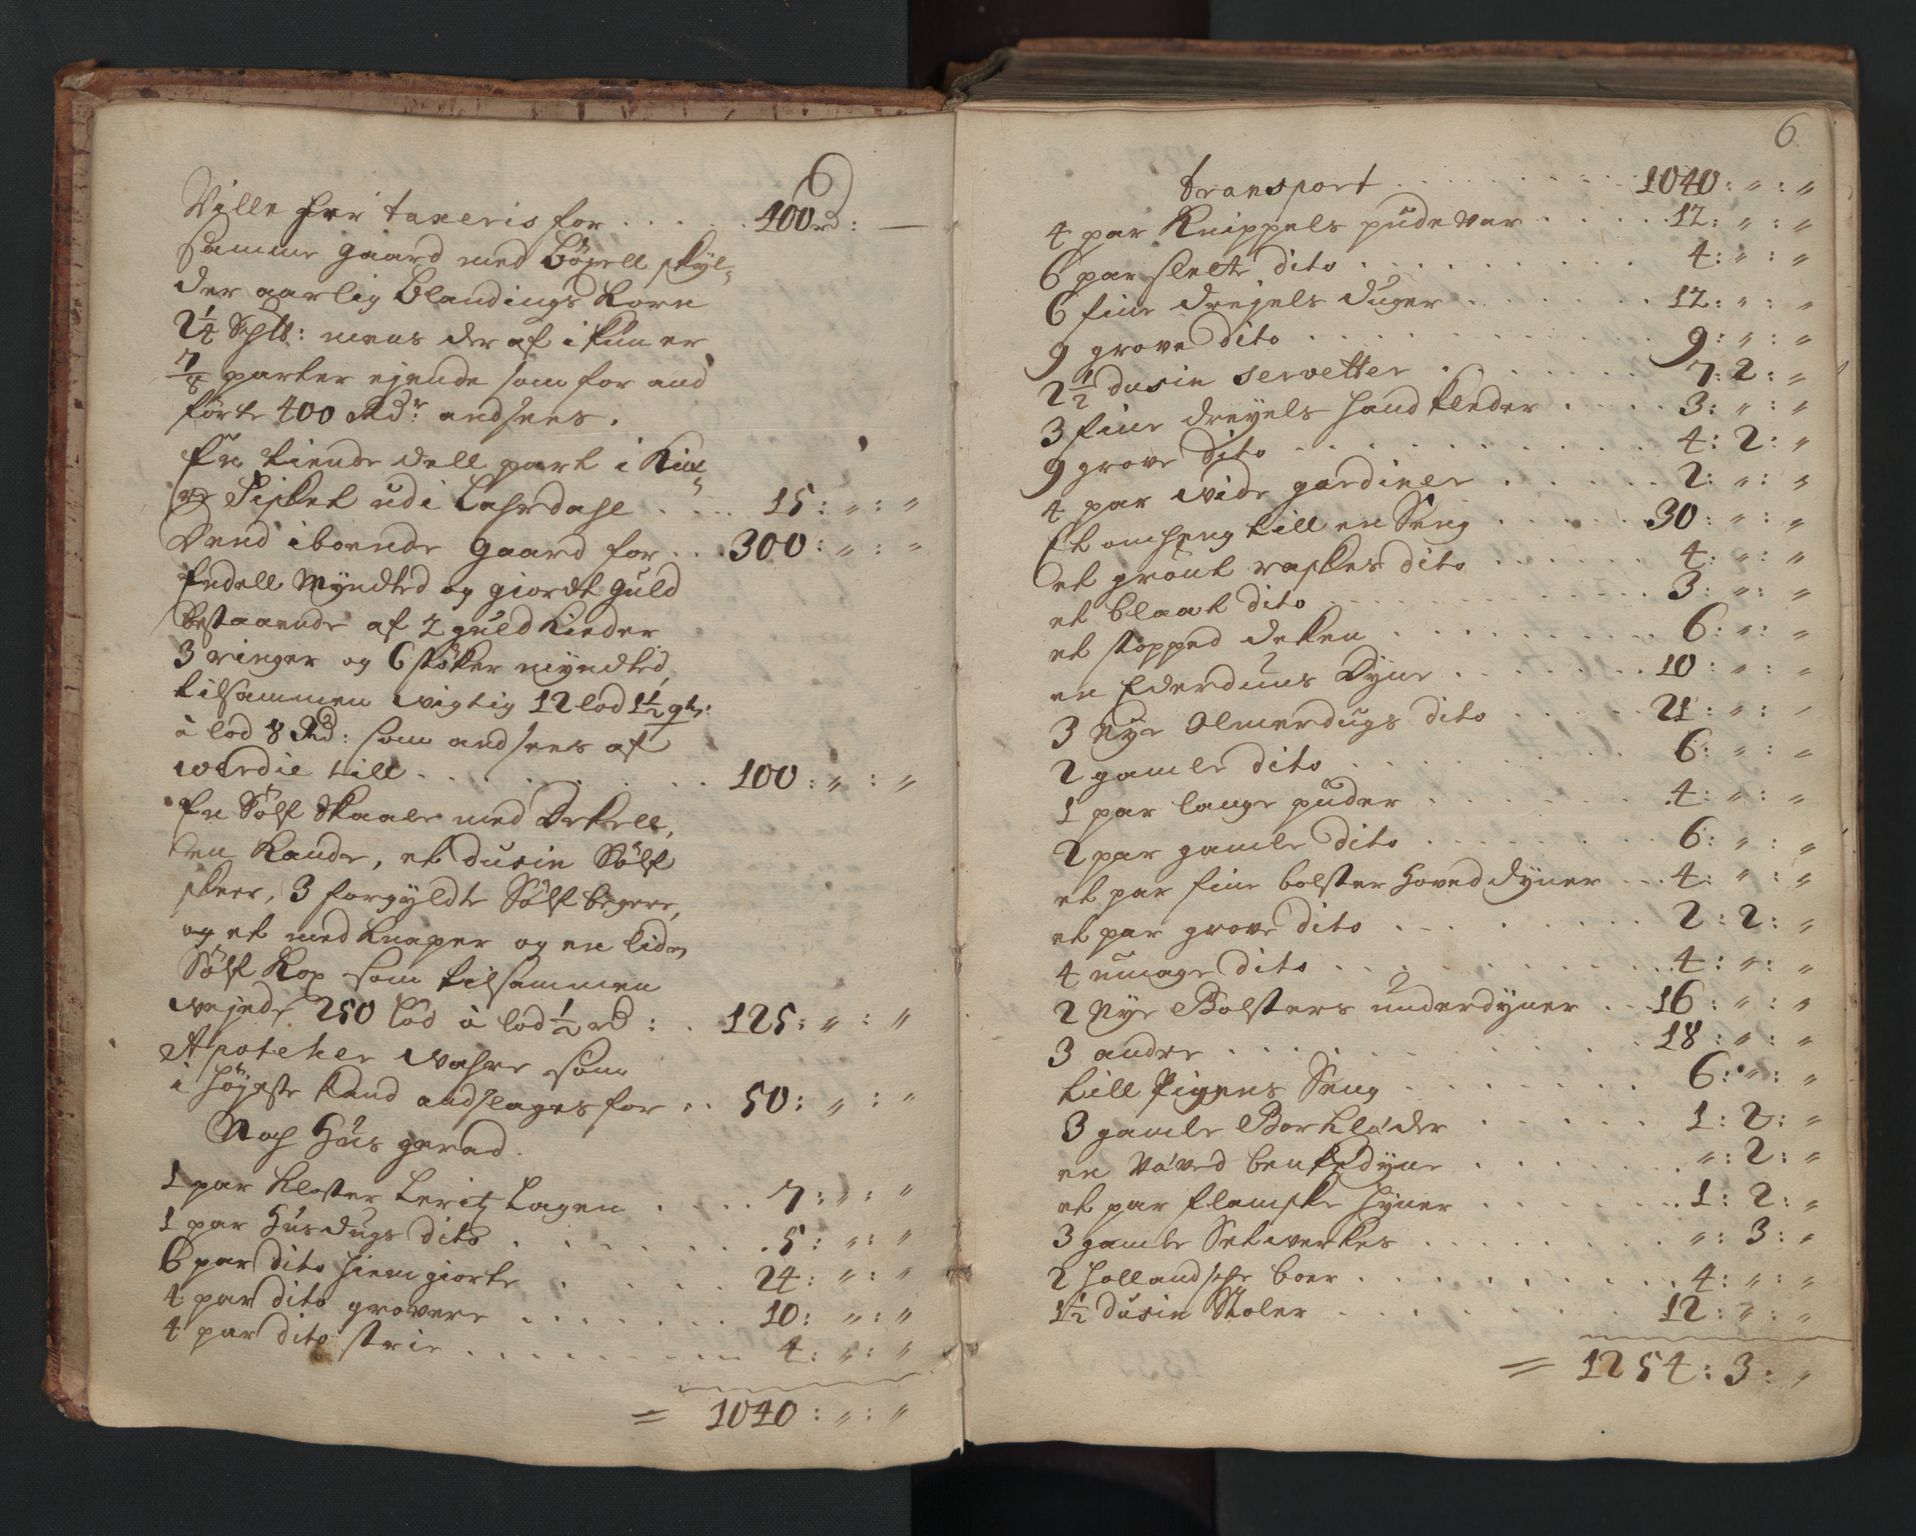 Ville her taxeris for . . . . . 400 rd : —
samme gaard med Böxell skyl-
der aarlig blandings Korn
2 1/4 Schll: mens der af i kun er
7/8 parter ejende som for and
förte 400 Rdr andsees.
En tiende dell part i
Fisket udi Lahrdahl . . . . 15 : " : "
Dend iboende gaard for . . . 300 : " : "
Endell Myndted og giordt guld
bestaaende af 2 guld Kieder
3 ringer og 6 stöker myndted,
tilsammen wigtig 12 lod 1 1/2 qt:
à lod 8 Rd: som andsees af
werdie till . . . . . . . . 100 : " : "
En Sölf Skaale med Dekell,
en Kande, et dusin Sölf
skeer, 3 forgyldte Sölf begere,
og et med knaper og en liden
Sölf Kop som tilsammen
wejede 250 Lod à lod 1/2 rd : . . 125 : " : "
Apoteker Wahre som
i höjeste kand andslages for . . 50 : " : "
Noch Hus gerad.
1 par Kloster Leritz Lagen . . . . 7 : " : "
1 par Husdugs dito . . . . . . . 5 : " : "
6 par dito hiemgiorte . . . . . . 24 : " : "
4 par dito grovere . . . . . . . 10 : " : "
4 par dito strie . . . . . . . . 4 : " : "
= 1040 : " : "
6.
transport . . . . . . . . 1040 : " : "
4 par Knippels pudevar . . . . . 12 : " : "
6 par slette dito . . . . . . . . 4 : " : "
6 fine drejels duger . . . . . . 12 : " : "
9 grove dito . . . . . . . . . . 9 : " : "
2 1/2 dusin servetter . . . . . . 7 : 2 : "
3 fine dreyels handkleder . . . . 3 : " : "
9 grove dito . . . . . . . . . . 4 : 2 : "
4 par wide gardiner . . . . . . 2 : " : "
Et omheng till en Seng . . . . . 30 : " : "
et grönt raskes dito . . . . . . 4 : " : "
et blaat dito . . . . . . . . . 3 : " : "
et stopped deken . . . . . . . . 6 : " : "
en Ederduns Dyne . . . . . . . 10 : " : "
3 nye Olmerdugs dito . . . . . 21 : " : "
2 gamle dito . . . . . . . . . 6 : " : "
1 par lange puder . . . . . . . 4 : " : "
2 par gamle dito . . . . . . . 6 : " : "
et par fine bolster Hoved dyner . . 4 : " : "
et par grove dito . . . . . . . 2 : 2 : "
4 umage dito . . . . . . . . . 4 : " : "
2 Nye Bolsters underdyner . . 16 : " : "
3 andre . . . . . . . . . . . 18 : " : "
till Pigens Seng . . . . . . . . 6 : " : "
3 gamle Borkleder . . . . . . 1 : 2 : "
en Vaved benkedyne . . . . . . " : 2 : "
et par flamske hyner . . . . . . 1 : 2 : "
3 gamle Setwerkes . . . . . . . " : 3 : "
2 hollandsche boer . . . . . . . 4 : " : "
1 1/2 dusin Stoler . . . . . . . 12 : " : "
= 1254 : 3 : "